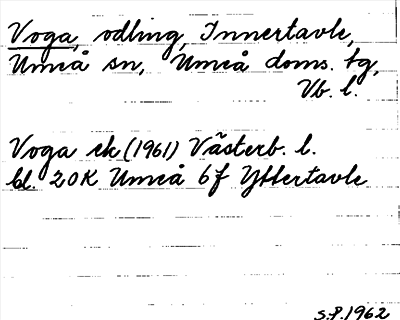 Voga, odling, Innertavle,
Umeå sn, Umeå doms. tg,
Vb. l.
Voga ek (1961) Västerb. l.
bl. 20K Umeå 6f Yttertavle
S.P. 1962